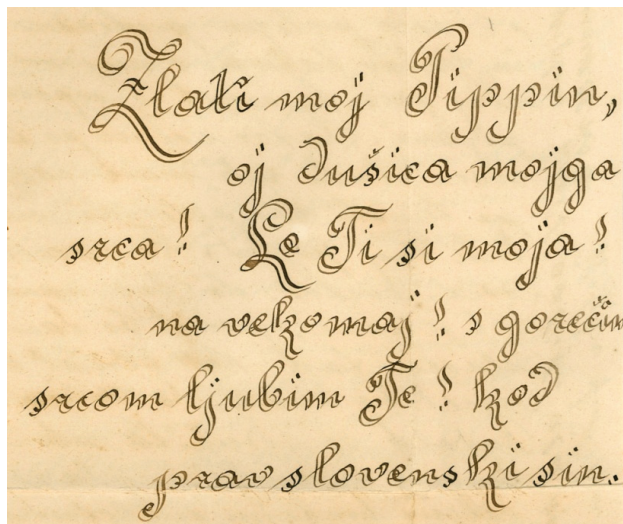 Zlati moj Pippin,
oj dušica mojga
srca! Le Ti si moja!
na vekomaj! s gorečim
srcom ljubim Te! kod
prav slovenski sin.